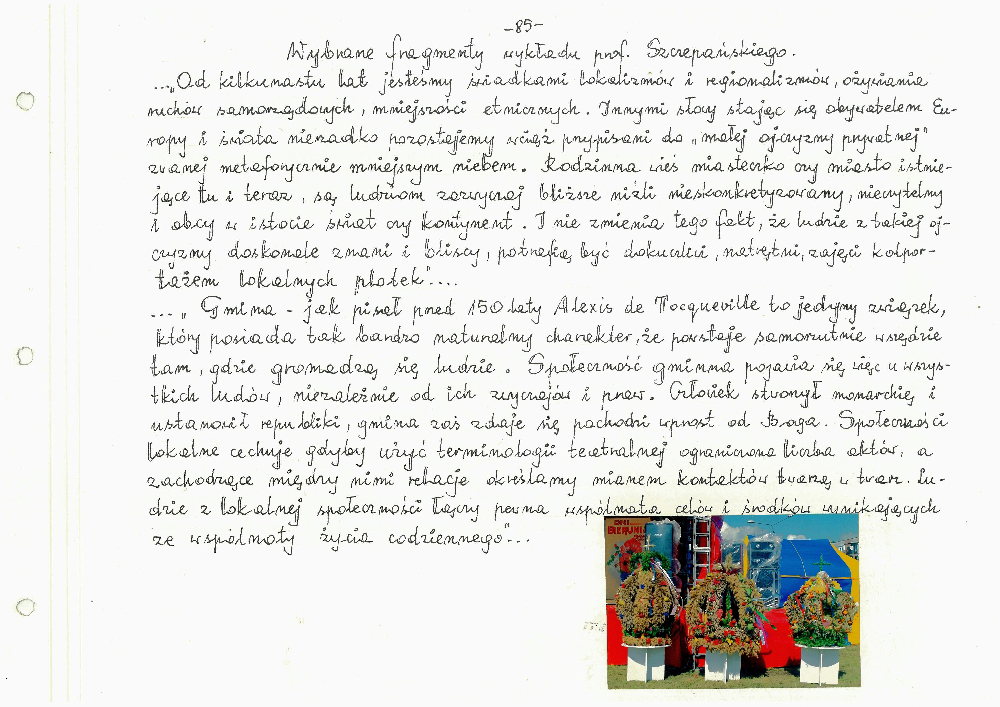 -85-
Wybrane fragmenty wykładu prof. Szczepańskiego.
..."Od kilkunastu lat jesteśmy świadkami lokalizmów i regionalizmów, ożywiania
ruchów samorządowych, mniejszości etnicznych. Innymi słowy stając się obywatelem Eu-
ropy i świata nierzadko pozostajemy wciąż przypisani do "małej ojczyzny prywatnej"
zwanej metaforycznie mniejszym niebem. Rodzinna wieś miasteczko czy miasto istnie-
jące tu i teraz, są ludziom zazwyczaj bliższe niźli nieskonkretyzowany, nieczytelny
i obcy w istocie świat czy kontynent. I nie zmienia tego fakt, że ludzie z takiej oj-
czyzny doskonale znani i bliscy, potrafią być dokuczliwi, natrętni, zajęci kolpor-
tażem lokalnych plotek"....
..." Gmina - jak pisał przed 150 laty Alexis de Tocqueville to jedyny związek,
który posiada tak bardzo naturalny charakter, że powstaje samorzutnie wszędzie
tam, gdzie gromadzą się ludzie. Społeczność gminna pojawia się więc u wszys-
tkich ludów, niezależnie od ich zwyczajów i praw. Człowiek stworzył monarchię i
ustanowił republiki, gmina zaś zdaje się pochodzi wprost od Boga. Społeczności
lokalne cechuje gdyby użyć terminologii teatralnej ograniczona liczba aktów, a
zachodzące między nimi relacje określamy mianem kontaktów twarzą w twarz. Lu-
dzie z lokalnej społeczności łączy pewna wspólnota celów i środków wynikających
ze wspólnoty życia codziennego"...
DNI
BIERUNIA